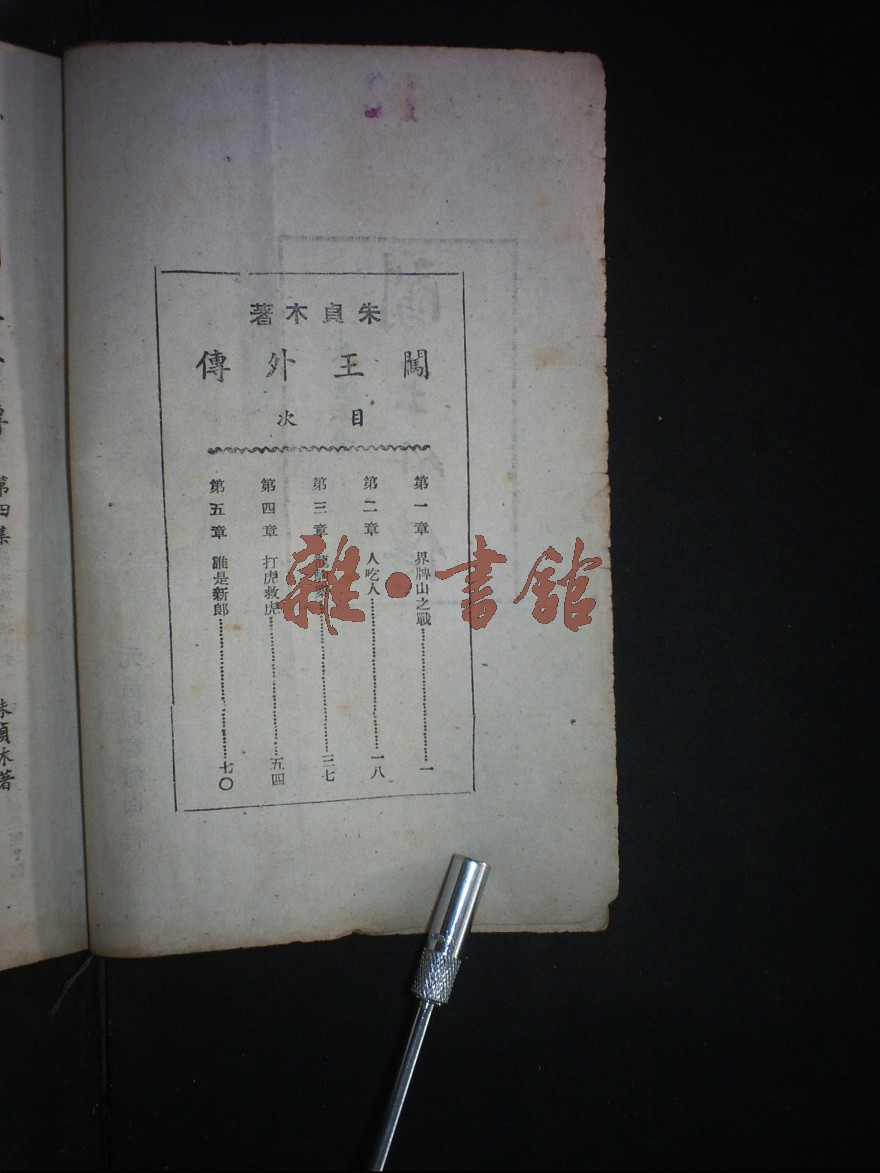 朱貞木著
闖王外傳
目次
第一章 界牌山之戰……一
第二章 人吃人……一八
第三章……三七
第四章 打虎救虎……五四
第五章 誰是新郎……七〇
雜·書館
第四集
朱貞木著